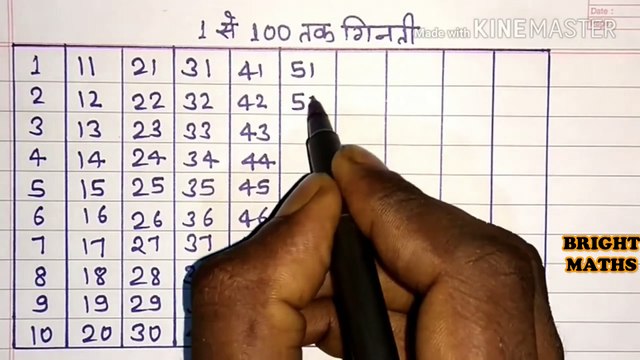 1 से 100 तक गिनती
Made with KINEMASTER
Date :
1 11 21 31 41 51
2 12 22 32 42
3 13 23 33 43
4 14 24 34 44
5 15 25 35 45
6 16 26 36 46
7 17 27 37
8 18 28
9 19 29
10 20 30
BRIGHT
MATHS